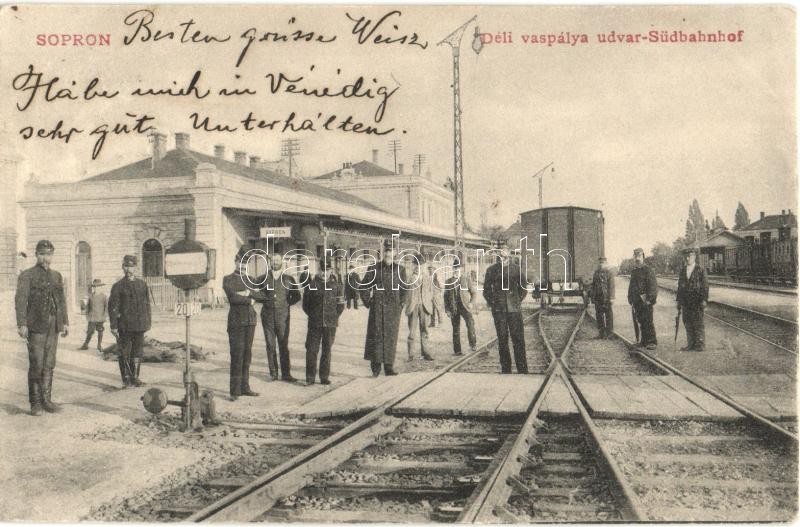 SOPRON Besten grüsse Weisz Déli vaspálya udvar-Südbahnhof
Habe mich in Vénédig
sehr gut Unterhálten.
SOPRON
darabanth